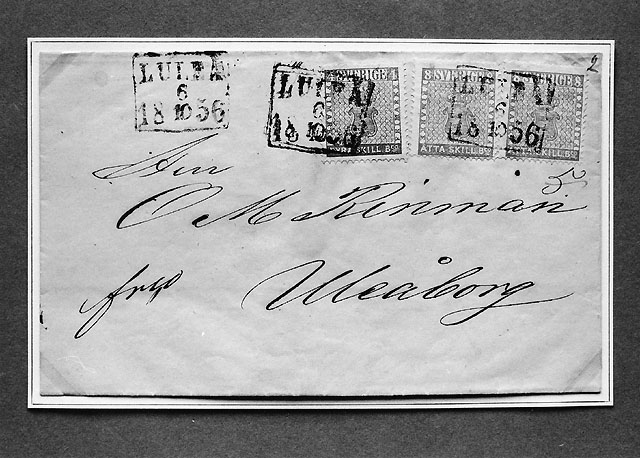 LULEÅ
6
18 10 56
LULEÅ
6
18 10 56
SVERIGE 4
FYRA SKILL. BCO
8 SVERIGE 8
ÅTTA SKILL. BCO
LULEÅ
6
18 10 56
SVERIGE 8
ÅTTA SKILL. BCO
2
Herr
O M Kinman
Uleåborg